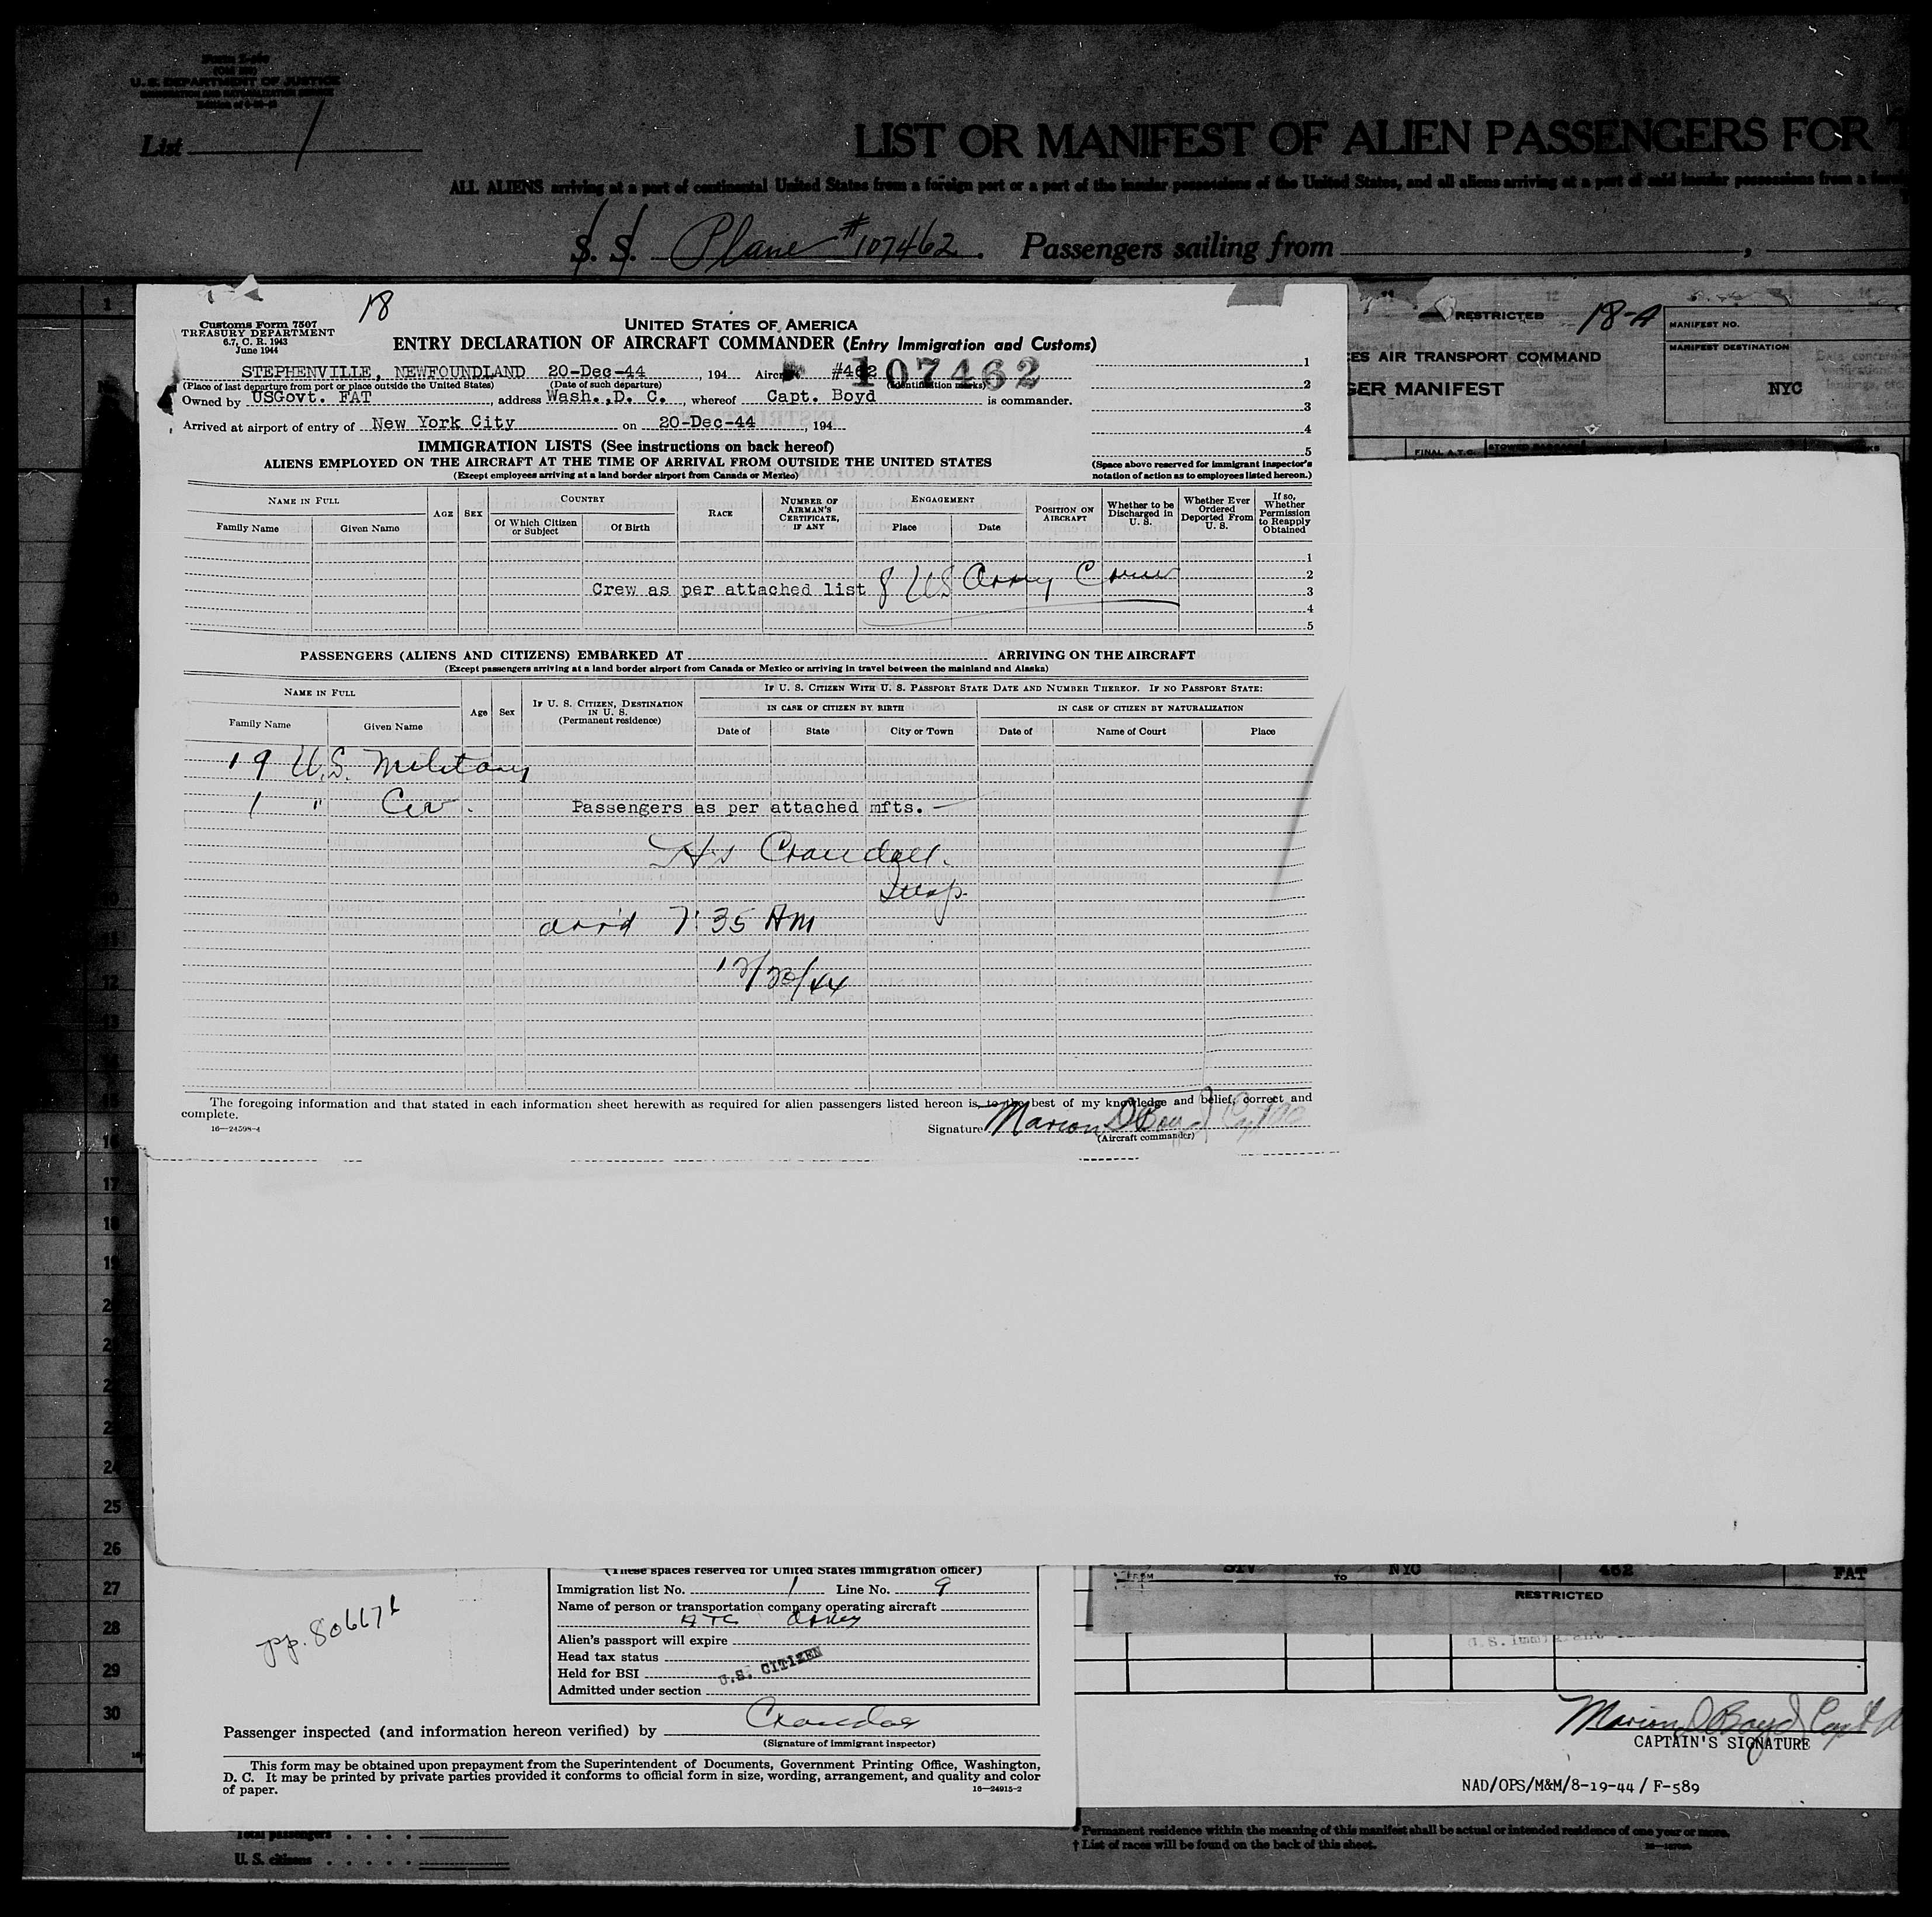 U. S. DEPARTMENT OF JUSTICE
IMMIGRATION AND NATURALIZATION SERVICE
List 1
LIST OR MANIFEST OF ALIEN PASSENGERS FOR T
ALL ALIENS arriving at a port of continental United States from a foreign port or a port of the insular possessions of the United States, and all aliens arriving at a port of said insular possessions from a
S. S. Plane #107462. Passengers sailing from
18
Customs Form 7507
TREASURY DEPARTMENT
6.7, C. R. 1943
June 1944
UNITED STATES OF AMERICA
ENTRY DECLARATION OF AIRCRAFT COMMANDER (Entry Immigration and Customs)
STEPHENVILLE, NEWFOUNDLAND 20-Dec-44, 194 Aircraft #462 107462
(Place of last departure from port or place outside the United States) (Date of such departure) (Identification marks)
Owned by USGovt. FAT, address Wash.,D. C., whereof Capt. Boyd is commander.
Arrived at airport of entry of New York City on 20-Dec-44, 194
1
2
3
4
5
(Space above reserved for immigrant inspector's notation of action as to employees listed hereon.)
IMMIGRATION LISTS (See instructions on back hereof)
ALIENS EMPLOYED ON THE AIRCRAFT AT THE TIME OF ARRIVAL FROM OUTSIDE THE UNITED STATES
(Except employees arriving at a land border airport from Canada or Mexico)
NAME IN FULL
Family Name Given Name
AGE SEX
COUNTRY
Of Which Citizen or Subject Of Birth
RACE
NUMBER OF AIRMAN'S CERTIFICATE, IF ANY
ENGAGEMENT
Place Date
POSITION ON AIRCRAFT
Whether to be Discharged in U. S.
Whether Ever Ordered Deported From U. S.
If so, Whether Permission to Reapply Obtained
1
2
Crew as per attached list 8 US Army Crew
3
4
5
PASSENGERS (ALIENS AND CITIZENS) EMBARKED AT ARRIVING ON THE AIRCRAFT
(Except passengers arriving at a land border airport from Canada or Mexico or arriving in travel between the mainland and Alaska)
NAME IN FULL
Family Name Given Name
Age Sex
IF U. S. CITIZEN, DESTINATION IN U. S. (Permanent residence)
IF U. S. CITIZEN WITH U. S. PASSPORT STATE DATE AND NUMBER THEREOF. IF NO PASSPORT STATE:
IN CASE OF CITIZEN BY BIRTH IN CASE OF CITIZEN BY NATURALIZATION
Date of State City or Town Date of Name of Court Place
19 U.S. Military
1 " Civ. Passengers as per attached mfts.
Crandall.
Insp.
arr'd 7:35 AM
12/20/44
The foregoing information and that stated in each information sheet herewith as required for alien passengers listed hereon is, to the best of my knowledge and belief, correct and
complete.
16—24598-4
Signature Marion D Boyd Capt AC
(Aircraft commander)
RESTRICTED 18-A
MANIFEST NO.
MANIFEST DESTINATION
NYC
CES AIR TRANSPORT COMMAND
GER MANIFEST
FINAL A.T.C. STOWED BAGGAGE
1
12
13
16
17
18
19
24
25
26
27
28
29
30
pp. 80667
(These spaces reserved for United States immigration officer)
Immigration list No. 1 Line No. 9
Name of person or transportation company operating aircraft
ATC Army
Alien's passport will expire
Head tax status
Held for BSI U.S. CITIZEN
Admitted under section
Passenger inspected (and information hereon verified) by Crandall
(Signature of immigrant inspector)
This form may be obtained upon prepayment from the Superintendent of Documents, Government Printing Office, Washington,
D. C. It may be printed by private parties provided it conforms to official form in size, wording, arrangement, and quality and color
of paper.
16—24915-2
STV TO NYC 462 FAT
RESTRICTED
Marion D Boyd Capt A
CAPTAIN'S SIGNATURE
NAD/OPS/M&M/8-19-44 / F-589
Total passengers
U. S. citizens
* Permanent residence within the meaning of this manifest shall be actual or intended residence of one year or more.
† List of races will be found on the back of this sheet.